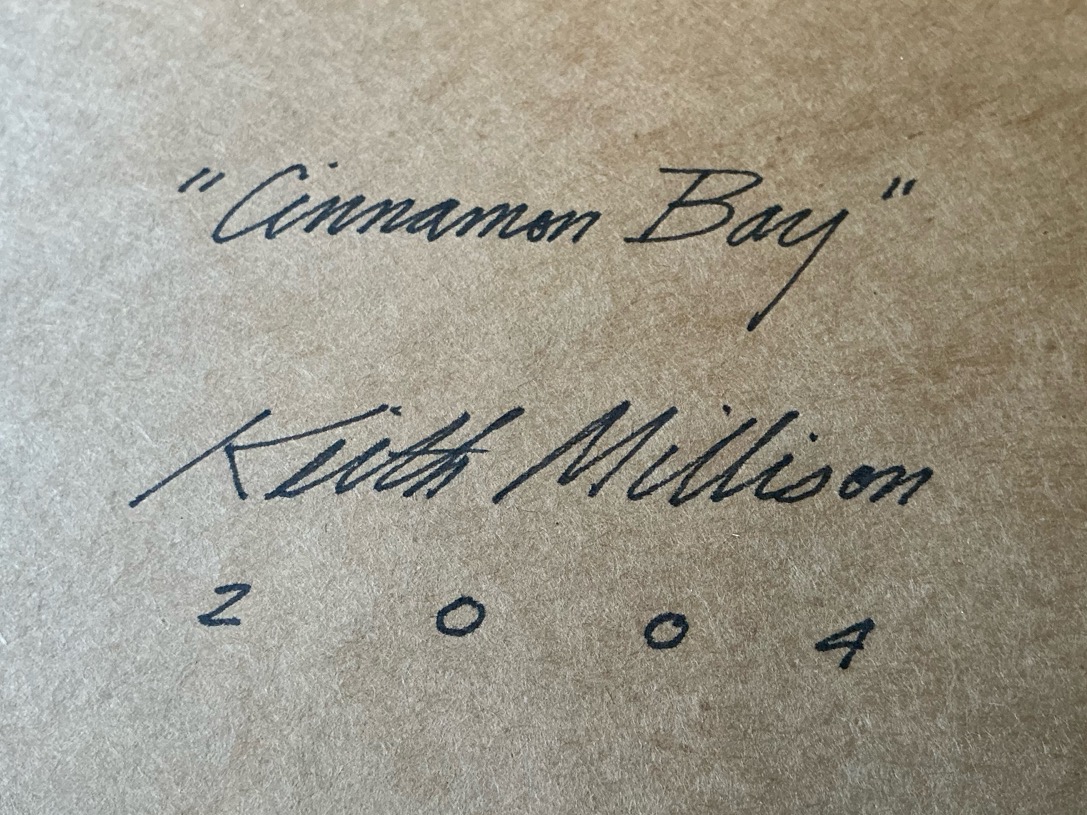 "Cinnamon Bay"
Keith Millison
2 0 0 4